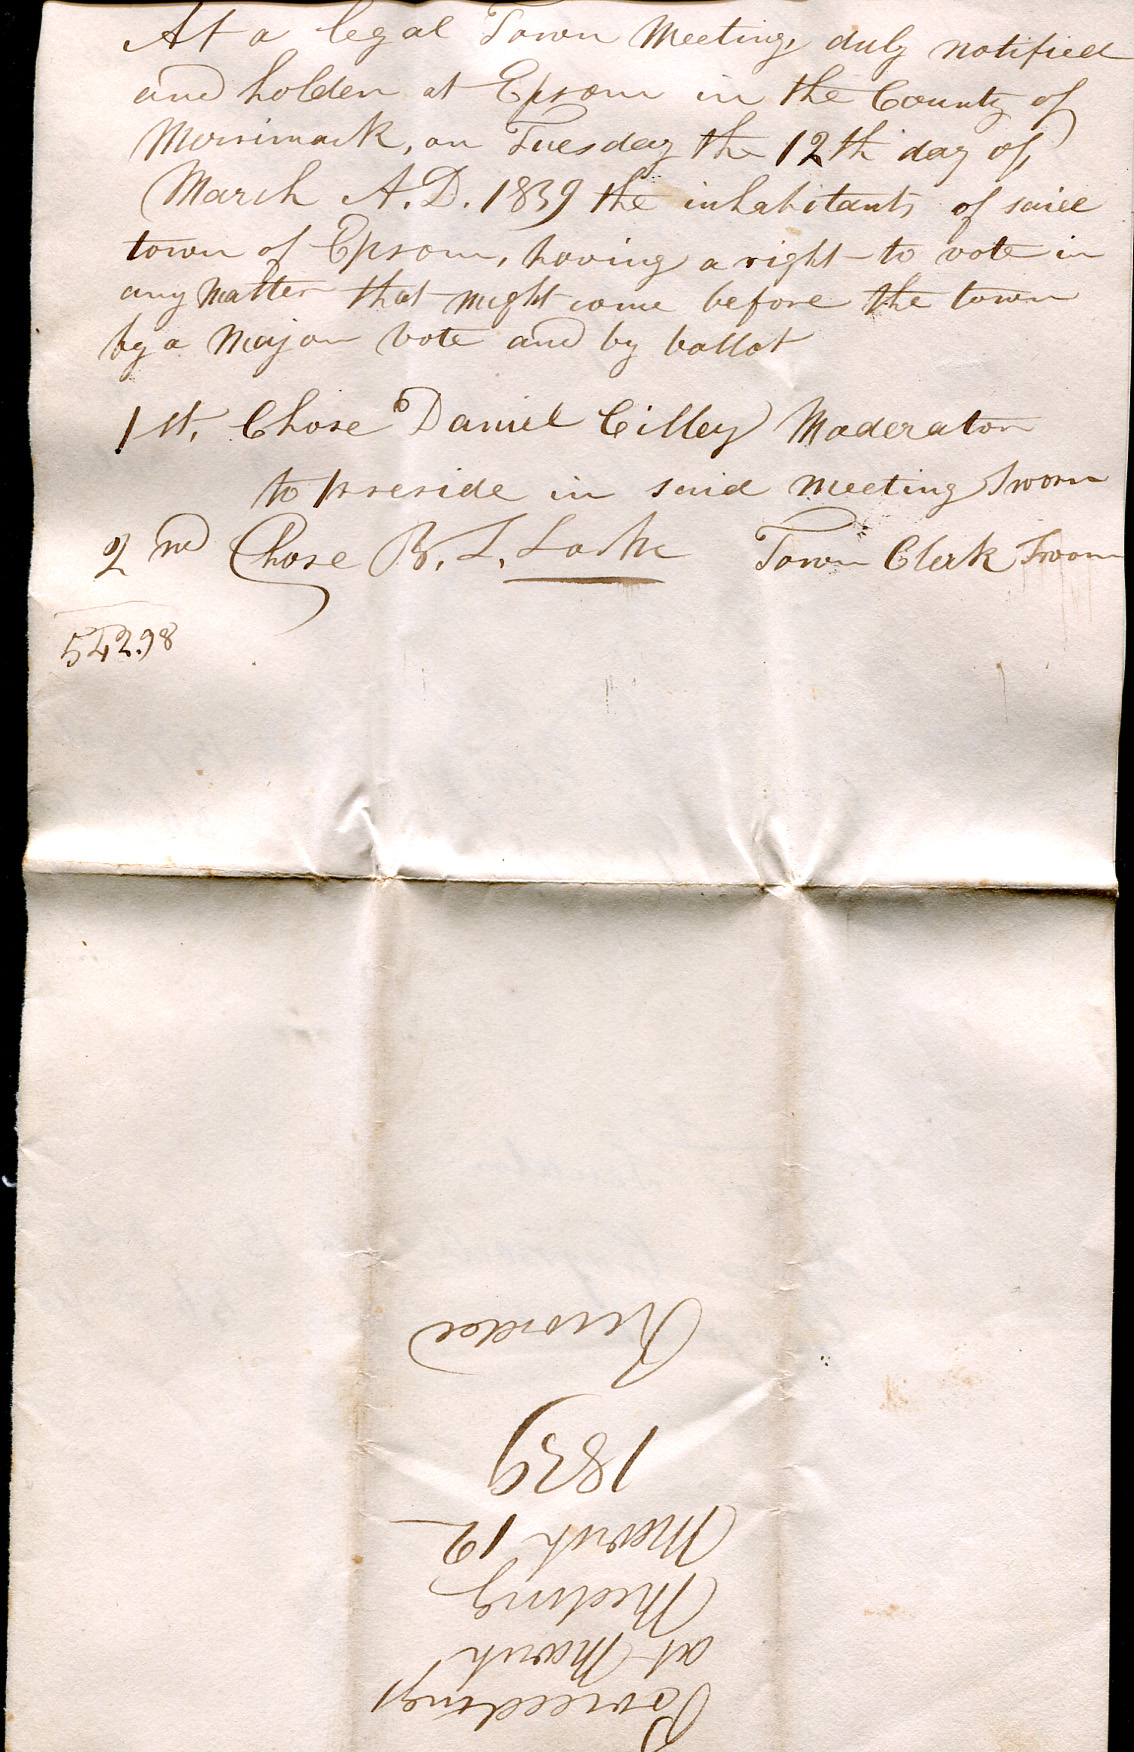 At a legal Town Meeting, duly notified
and holden at Epsom in the County of
Merrimack, on Tuesday the 12th day of,
March A.D. 1839 the inhabitants of said
town of Epsom, having a right to vote in
any Matter that might come before the town
by a Major vote and by ballot
1st, Chose Daniel Cilley Moderator
to preside in said Meeting Sworn
2nd Chose B. L. Locke Town Clerk Sworn
542.98
Proceedings
at March
Meeting
March 12
1839
Recorded